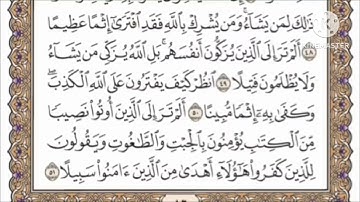 ذَٰلِكَ لِمَن يَشَآءُ ۚ وَمَن يُشْرِكْ بِٱللَّهِ فَقَدِ ٱفْتَرَىٰٓ إِثْمًا عَظِيمًا
٤٨ أَلَمْ تَرَ إِلَى ٱلَّذِينَ يُزَكُّونَ أَنفُسَهُم ۚ بَلِ ٱللَّهُ يُزَكِّى مَن يَشَآءُ
وَلَا يُظْلَمُونَ فَتِيلًا ٤٩ ٱنظُرْ كَيْفَ يَفْتَرُونَ عَلَى ٱللَّهِ ٱلْكَذِبَ ۖ
وَكَفَىٰ بِهِۦٓ إِثْمًا مُّبِينًا ٥٠ أَلَمْ تَرَ إِلَى ٱلَّذِينَ أُوتُوا۟ نَصِيبًا
مِّنَ ٱلْكِتَٰبِ يُؤْمِنُونَ بِٱلْجِبْتِ وَٱلطَّٰغُوتِ وَيَقُولُونَ
لِلَّذِينَ كَفَرُوا۟ هَٰٓؤُلَآءِ أَهْدَىٰ مِنَ ٱلَّذِينَ ءَامَنُوا۟ سَبِيلًا ٥١